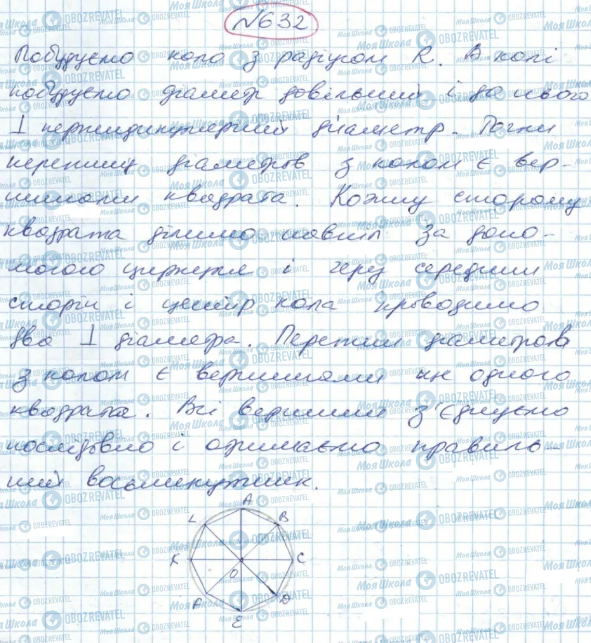 №632
Побудуємо коло з радіусом R. В колі
побудуємо діаметр довільний і до нього
⊥ перпендикулярний діаметр. Точки
перетину діаметрів з колом є вер-
шинами квадрата. Кожну сторону
квадрата ділимо навпіл за допо-
могою циркуля і через середини
сторін і центр кола проводимо
два ⊥ діаметра. Перетин діаметрів
з колом є вершинами ще одного
квадрата. Всі вершини з'єднуємо
послідовно і отримаємо правиль-
ний восьмикутник.
A
L B
K C
O
P D
E